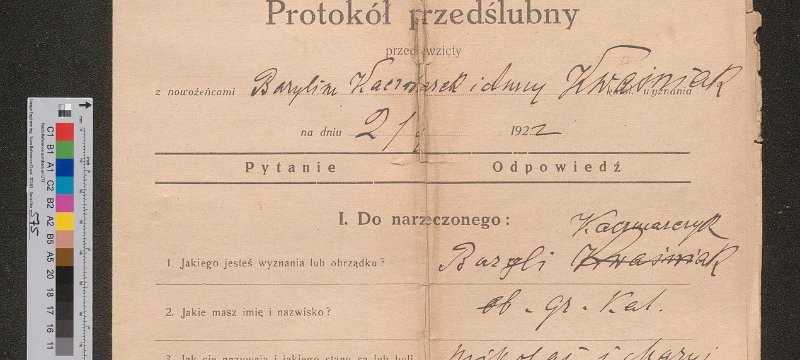 Protokół przedślubny
przedsięwzięty
z nowożeńcami Bazylim Kaczmarek i Anny Kwaśniak wyznania
na dniu 2/ 1922
Pytanie Odpowiedź
I. Do narzeczonego:
Kaczmarczyk
1. Jakiego jesteś wyznania lub obrządku? Bazyli Kwaśniak
2. Jakie masz imię i nazwisko? ob. gr. Kat.
3. Jak się nazywają i jakiego stanu są lub byli Mikołaj i Maryi
C1
B1
A1
C2
B2
A2
B5
A5
20
18
17
16
11
575